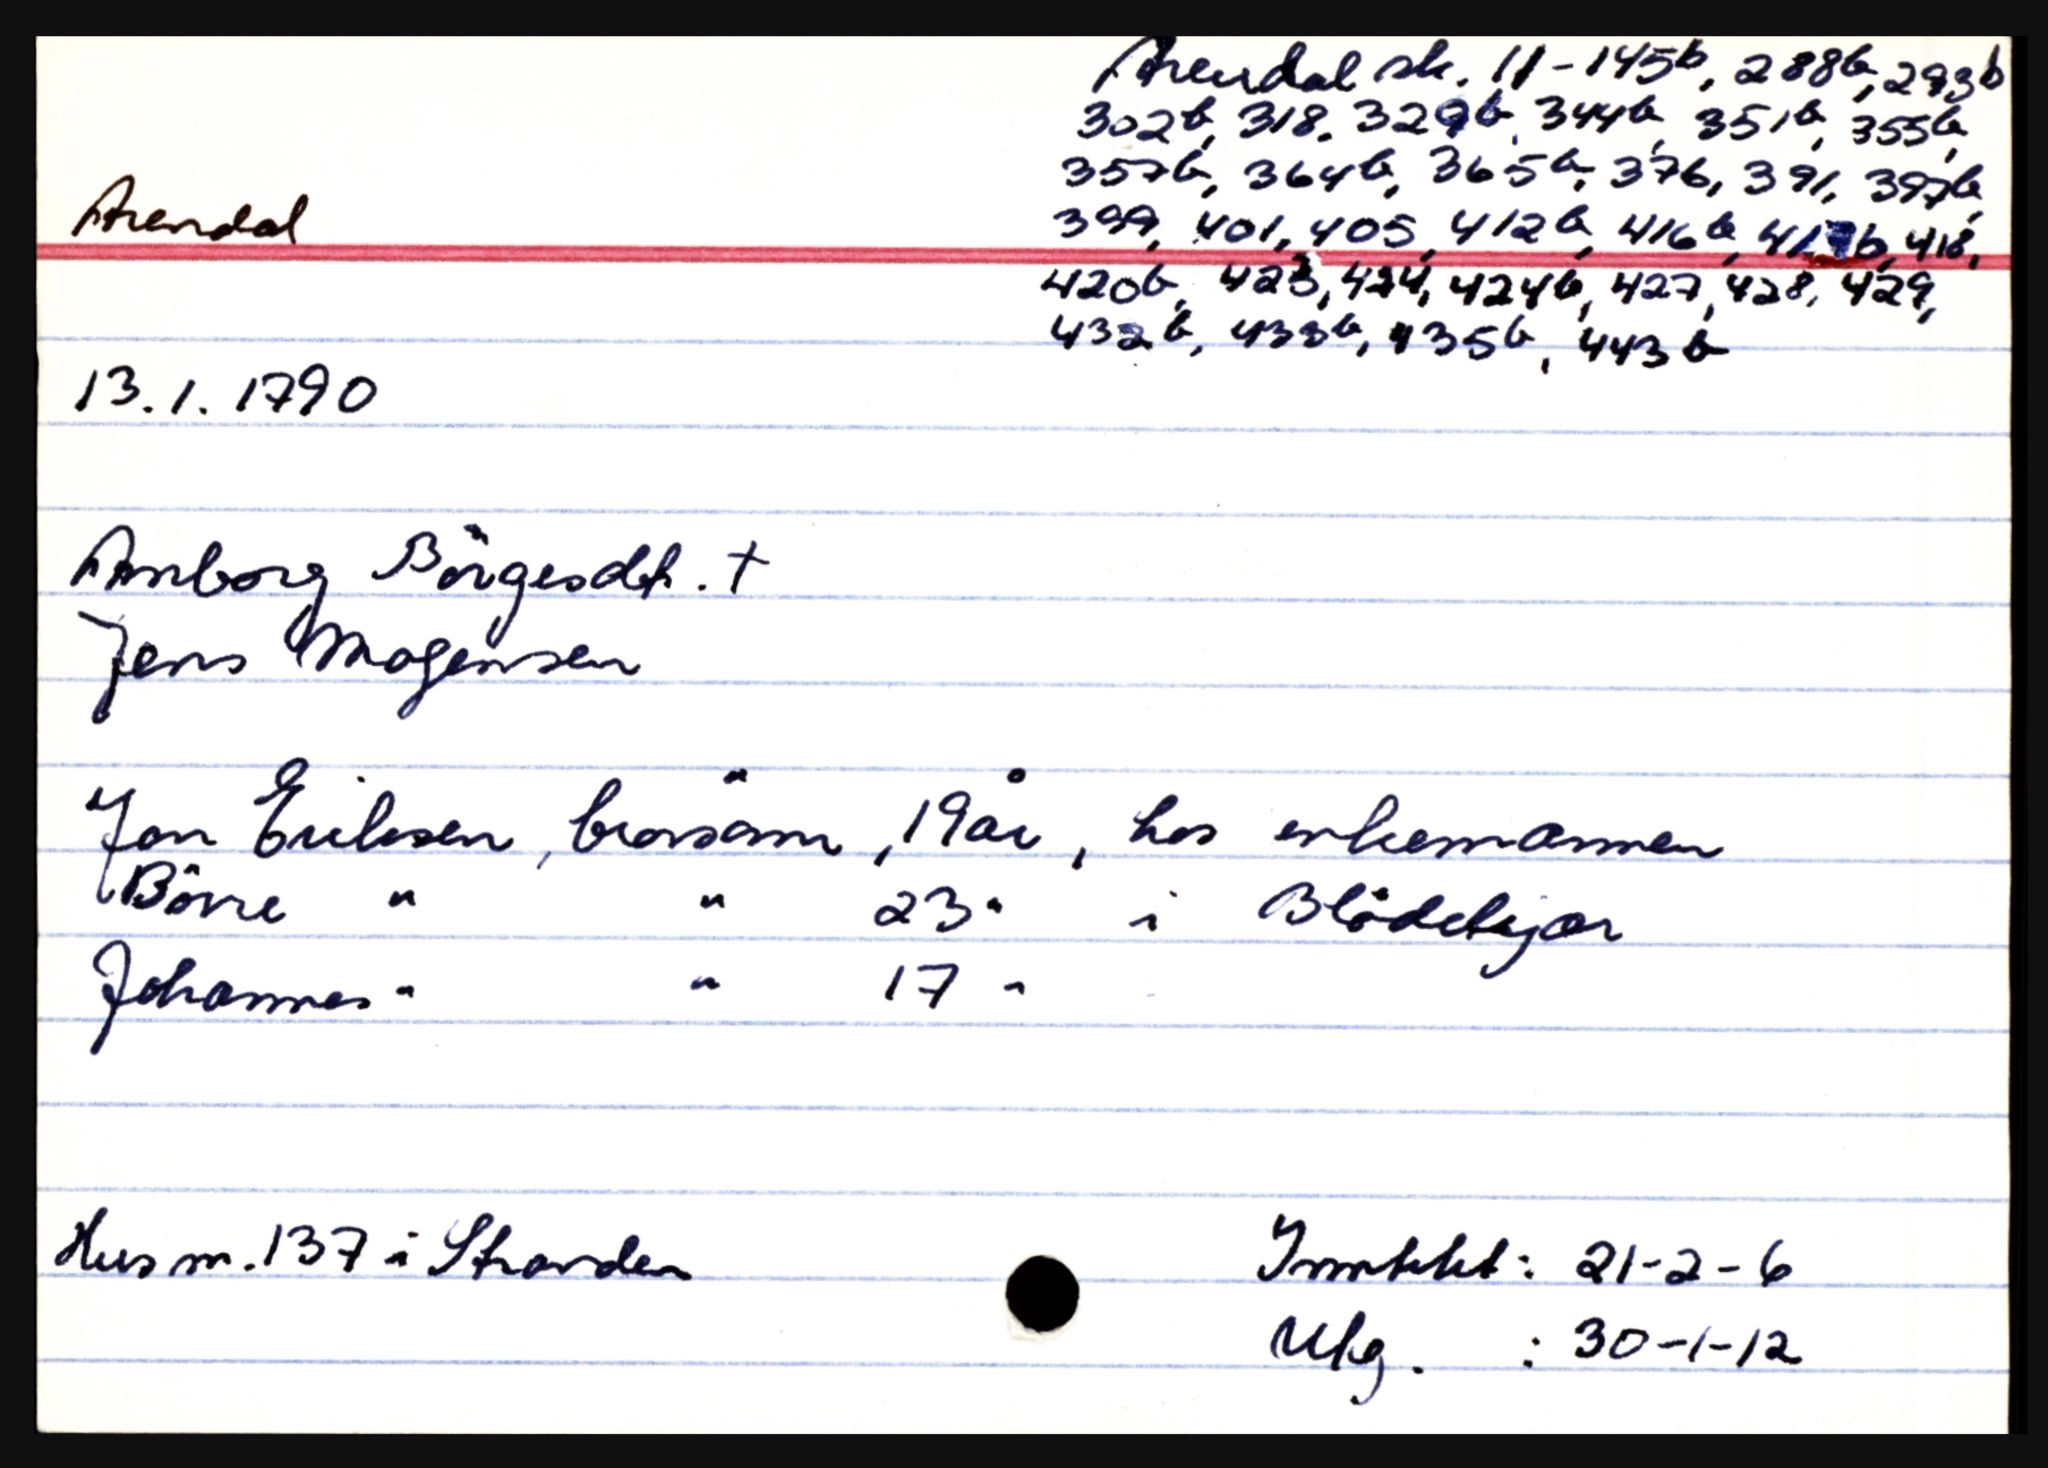 Arendal sk. 11-145b, 288b, 293b
302b, 318. 329b, 344b, 351b, 355b,
357b, 364b, 365b, 376, 391, 397b,
Arendal 399, 401, 405, 412b, 416b, 417b, 418,
420b, 423, 424, 424b, 427, 428, 429,
432b, 433b, 435b, 443b
13.1.1790
Anborg Börgesdt. +
Jens Mogensen
Jon Eriksen, brorsönn, 19 år, hos enkemannen
Börre " " 23 " i Blödekjær
Johannes " " 17 "
Hus nr. 137 i Stranden Inntekt: 21-2-6
Utg. : 30-1-12